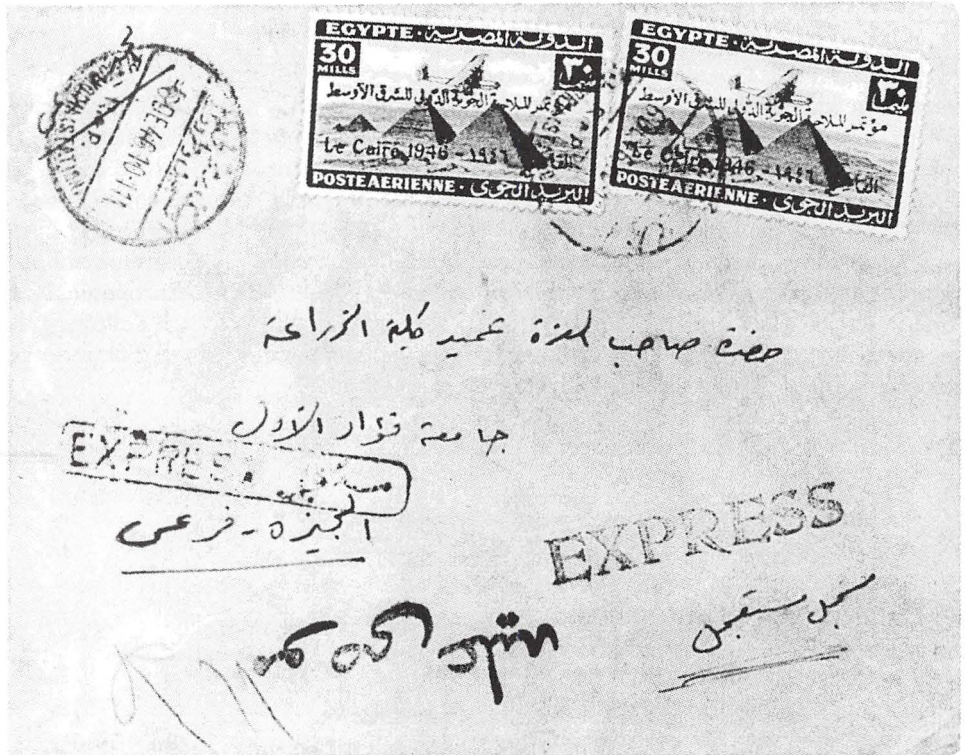 EGYPTE · الدولة المصرية
30 MILLS ٣٠ مليما
مؤتمر الملاحة الجوية الدولى للشرق الأوسط
Le Caire 1946 - ١٩٤٦ القاهرة
POSTE AERIENNE · البريد الجوى
EGYPTE · الدولة المصرية
30 MILLS ٣٠ مليما
مؤتمر الملاحة الجوية الدولى للشرق الأوسط
Le Caire 1946 - ١٩٤٦ القاهرة
POSTE AERIENNE · البريد الجوى
DE.46.10-11
حضرة صاحب العزة عميد كلية الزراعة
جامعة فؤاد الأول
EXPRES مستعجل
الجيزة - فرعى
EXPRESS
مسجل مستعجل